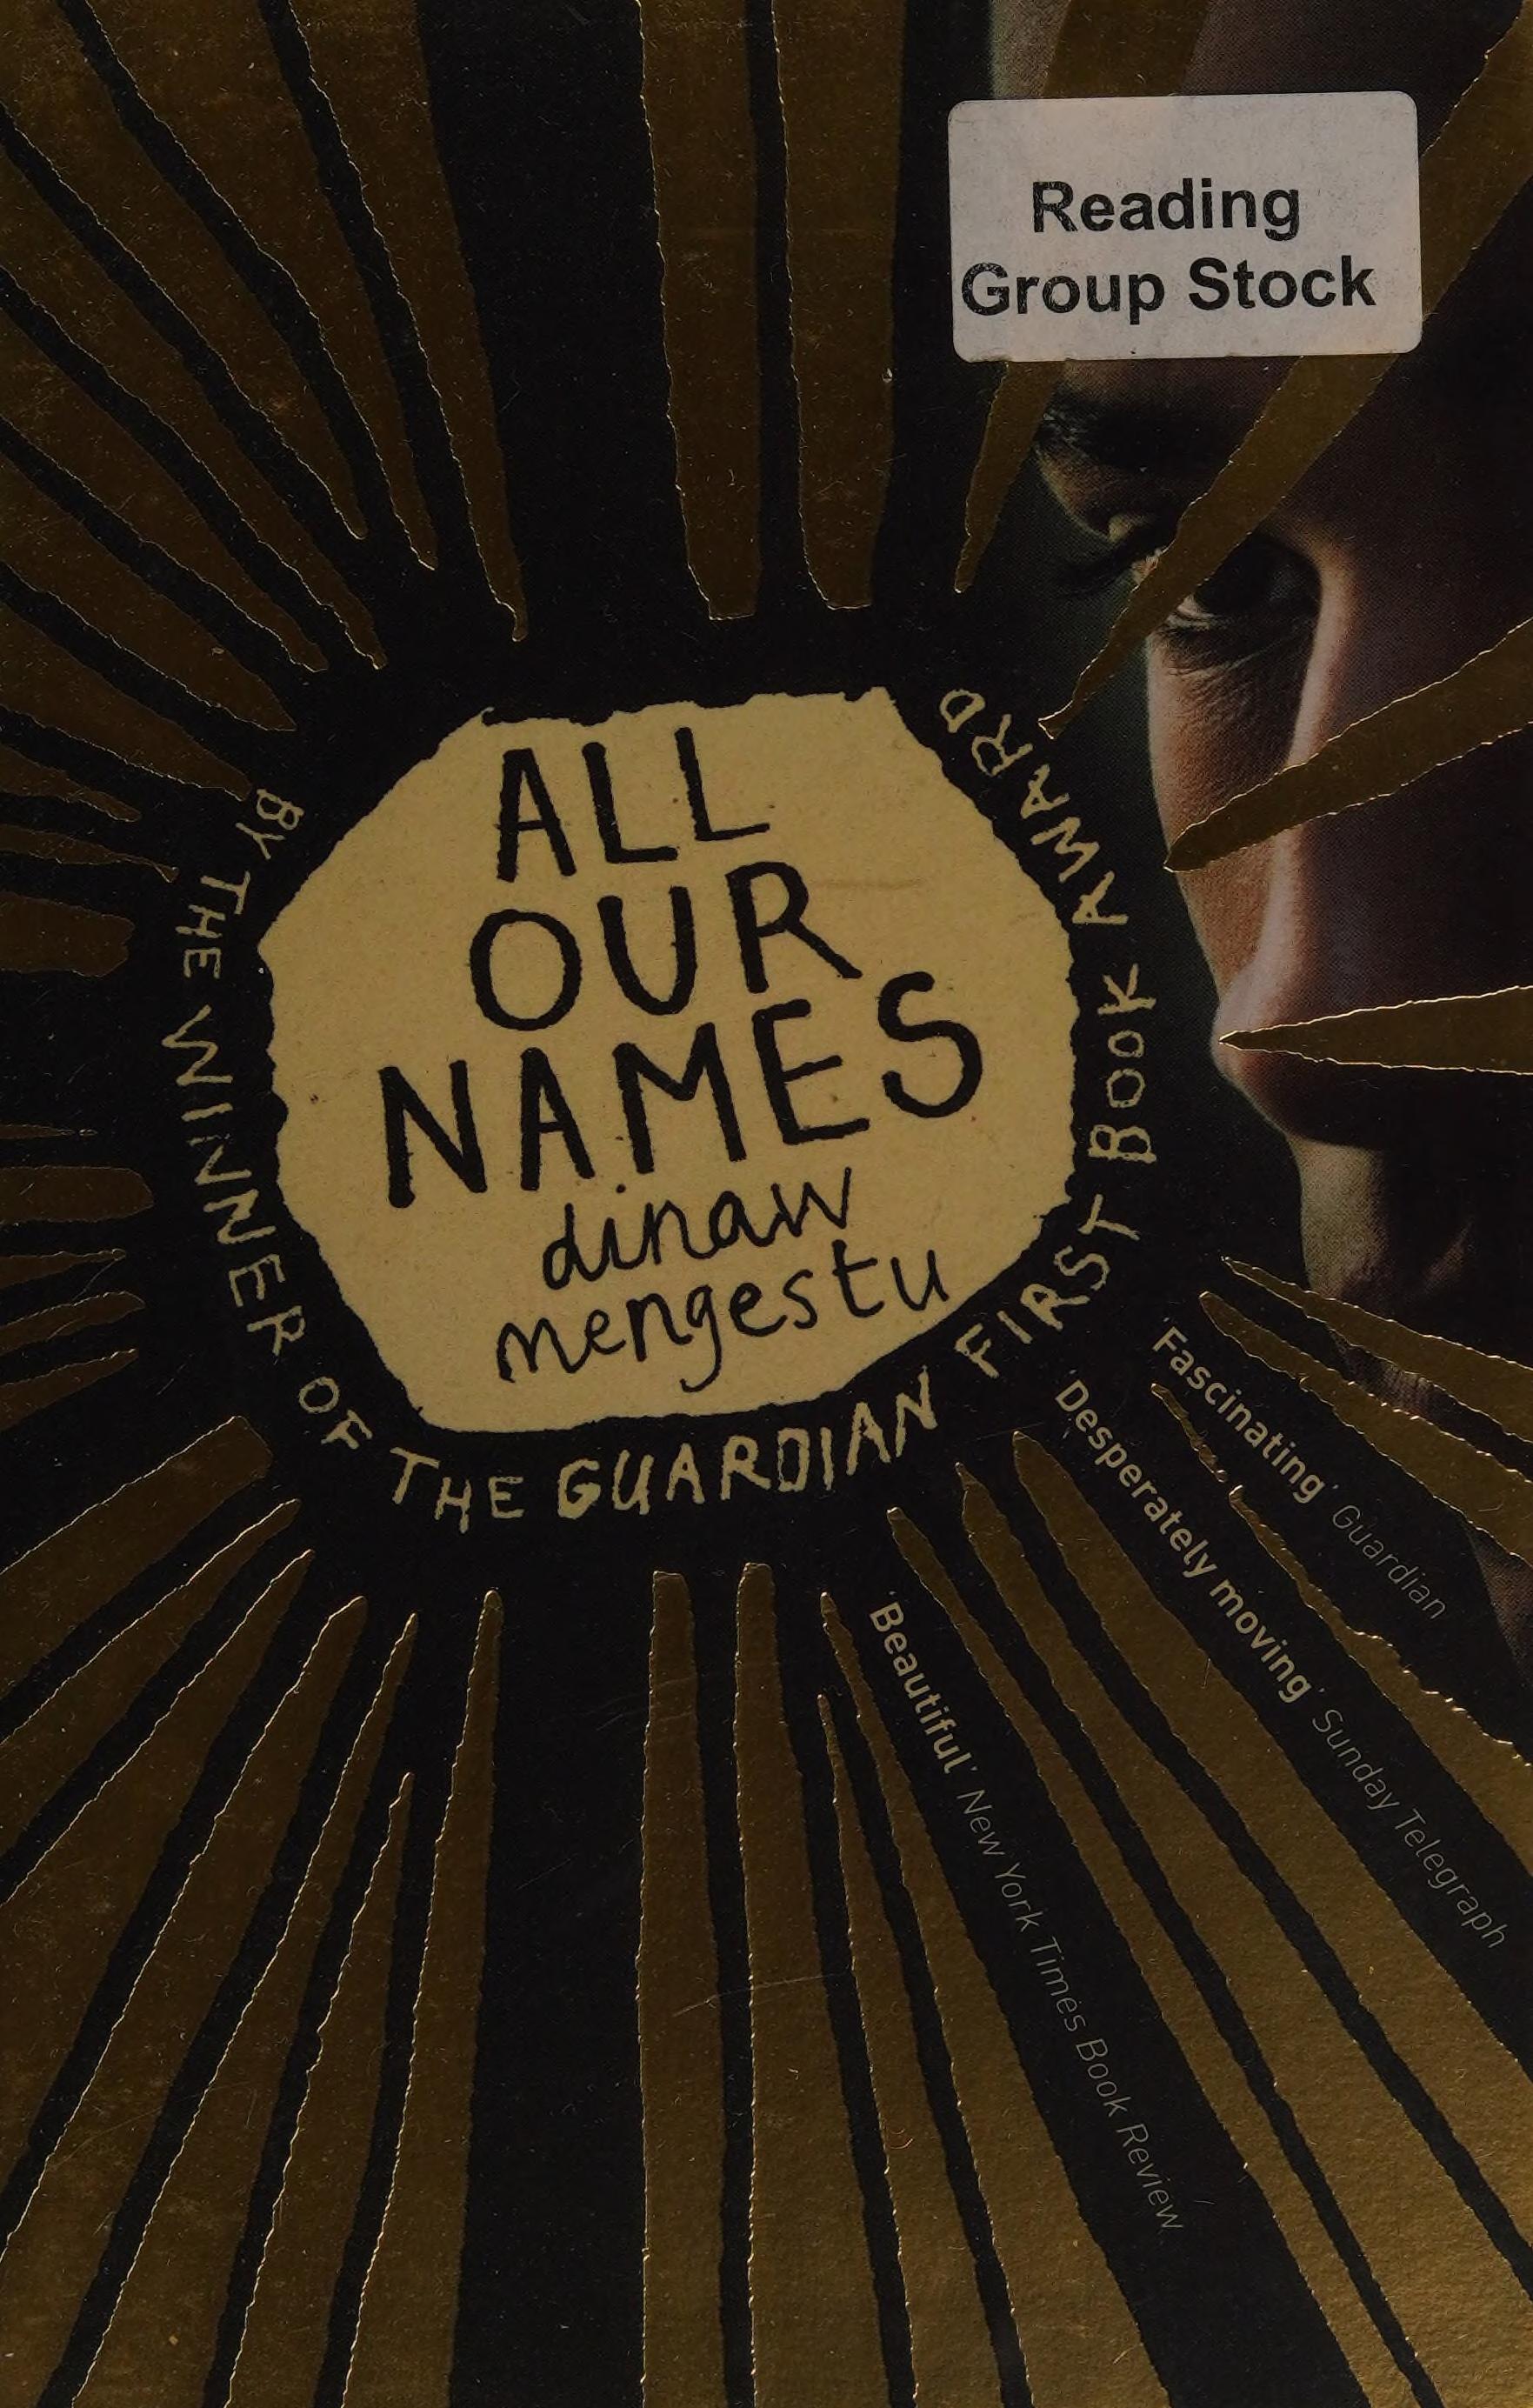 Reading
Group Stock
ALL
OUR
NAMES
dinaw
mengestu
BY THE WINNER OF THE GUARDIAN FIRST BOOK AWARD
'Fascinating' Guardian
'Desperately moving' Sunday Telegraph
'Beautiful' New York Times Book Review